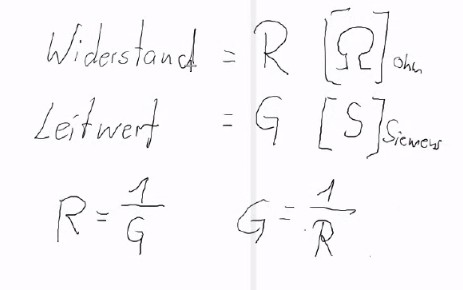 Widerstand = R [Ω] Ohm
Leitwert = G [S] Siemens
R = 1/G G = 1/R